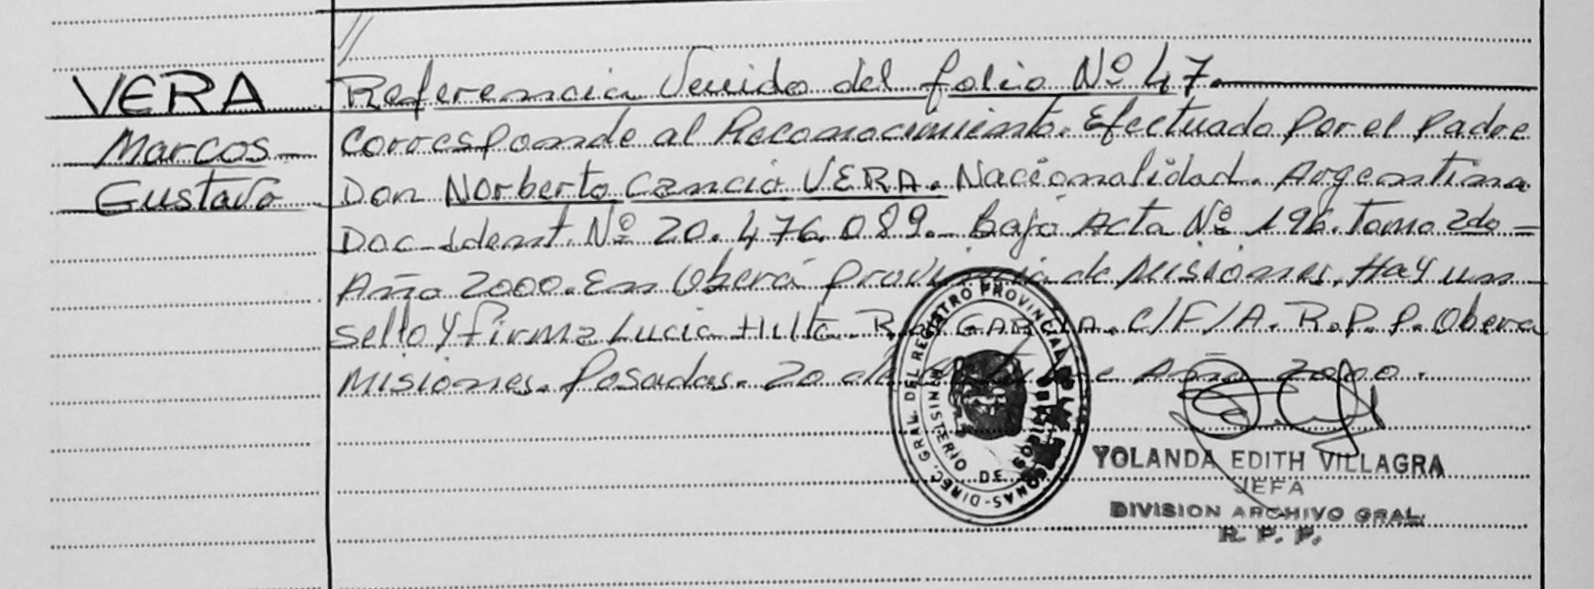 //
VERA
Marcos
Gustavo
Referencia Venido del folio Nº 47.
Corresponde al Reconocimiento. Efectuado por el Padre
Don Norberto Cancio VERA. Nacionalidad. Argentina
Doc-Ident. Nº 20.476.089.- Bajo Acta Nº 196. Tomo 2do =
Año 2000. En Oberá provincia de Misiones. Hay un
sello y firma Lucia Hilta. GARCIA. C/F/A. R.P.P. Obera
Misiones. Posadas. 20 de Año 2000.
DIREC. GRAL. DEL REGISTRO PROVINCIAL DE LAS PERSONAS
MINISTERIO DE
YOLANDA EDITH VILLAGRA
JEFA
DIVISION ARCHIVO GRAL.
R. P. P.